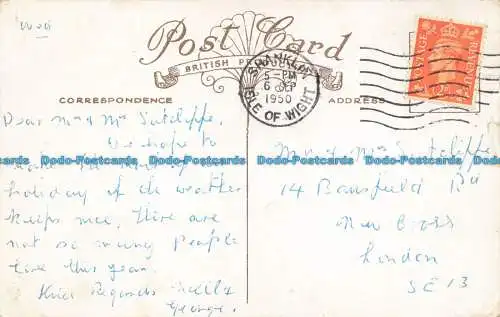 Post Card
BRITISH PRODUCTION
CORRESPONDENCE
ADDRESS
SHANKLIN
5 - PM
6 SEP
1950
ISLE OF WIGHT
POSTAGE
REVENUE
Dear Mr & Mrs Sutcliffe,
We hope to
make the
holiday if the weather
keeps nice, there are
not so many people
here this year.
Kind Regards Nelly
George.
Mr & Mrs Sutcliffe
14 Rd
New Cross
London
SE 13
Dodo-Postcards Dodo-Postcards Dodo-Postcards Dodo-Postcards